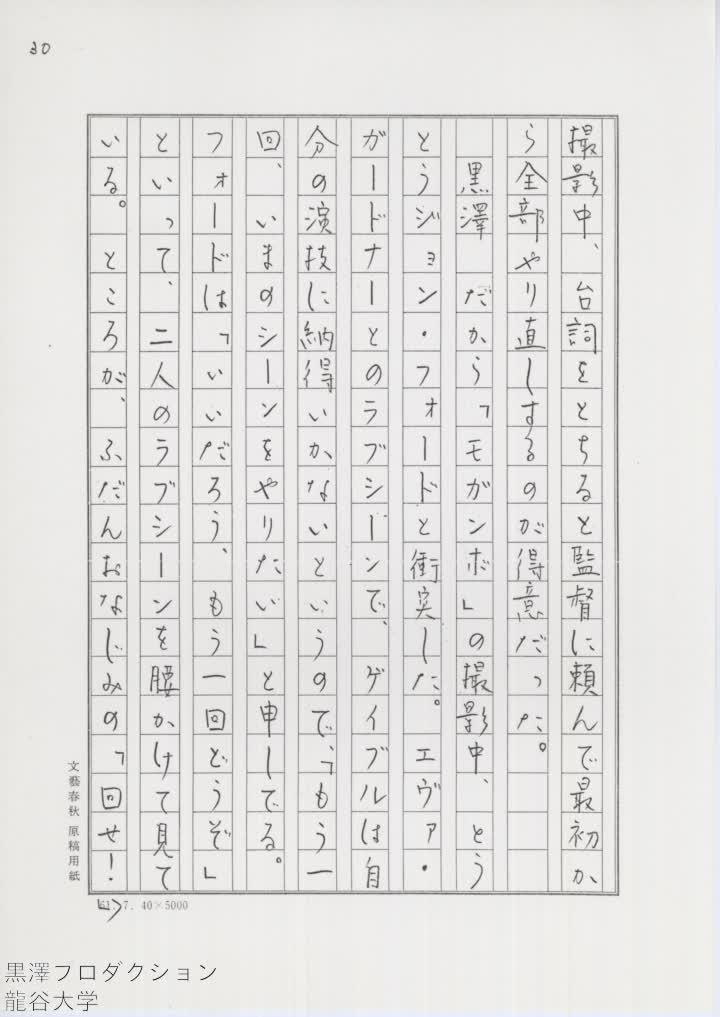 30
撮影中、台詞をとちると監督に頼んで最初か
ら全部やり直しするのが得意だった。
黒澤　だから「モガンボ」の撮影中、とう
とうジョン・フォードと衝突した。エヴァ・
ガードナーとのラブシーンで、ゲイブルは自
分の演技に納得いかないというので、「もう一
回、いまのシーンをやりたい」と申しでる。
フォードは「いいだろう、もう一回どうぞ」
といって、二人のラブシーンを腰かけて見て
いる。ところが、ふだんおなじみの「回せ！
」
文藝春秋 原稿用紙
61. 7. 40×5000
黒澤プロダクション
龍谷大学